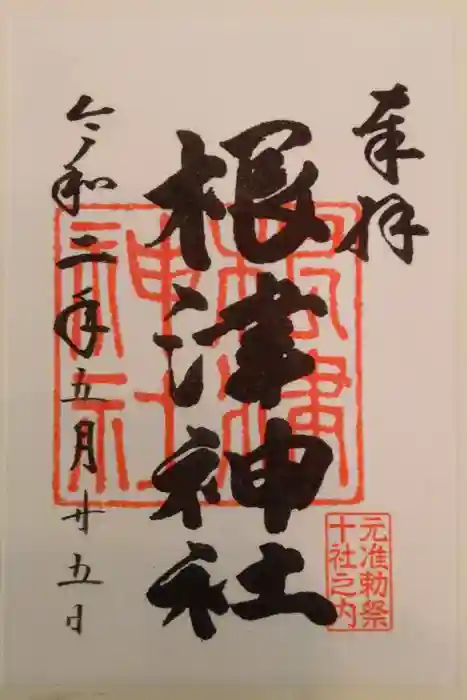 奉拝
根津神社
令和二年五月廿五日
根津神社
元准勅祭
十社之内